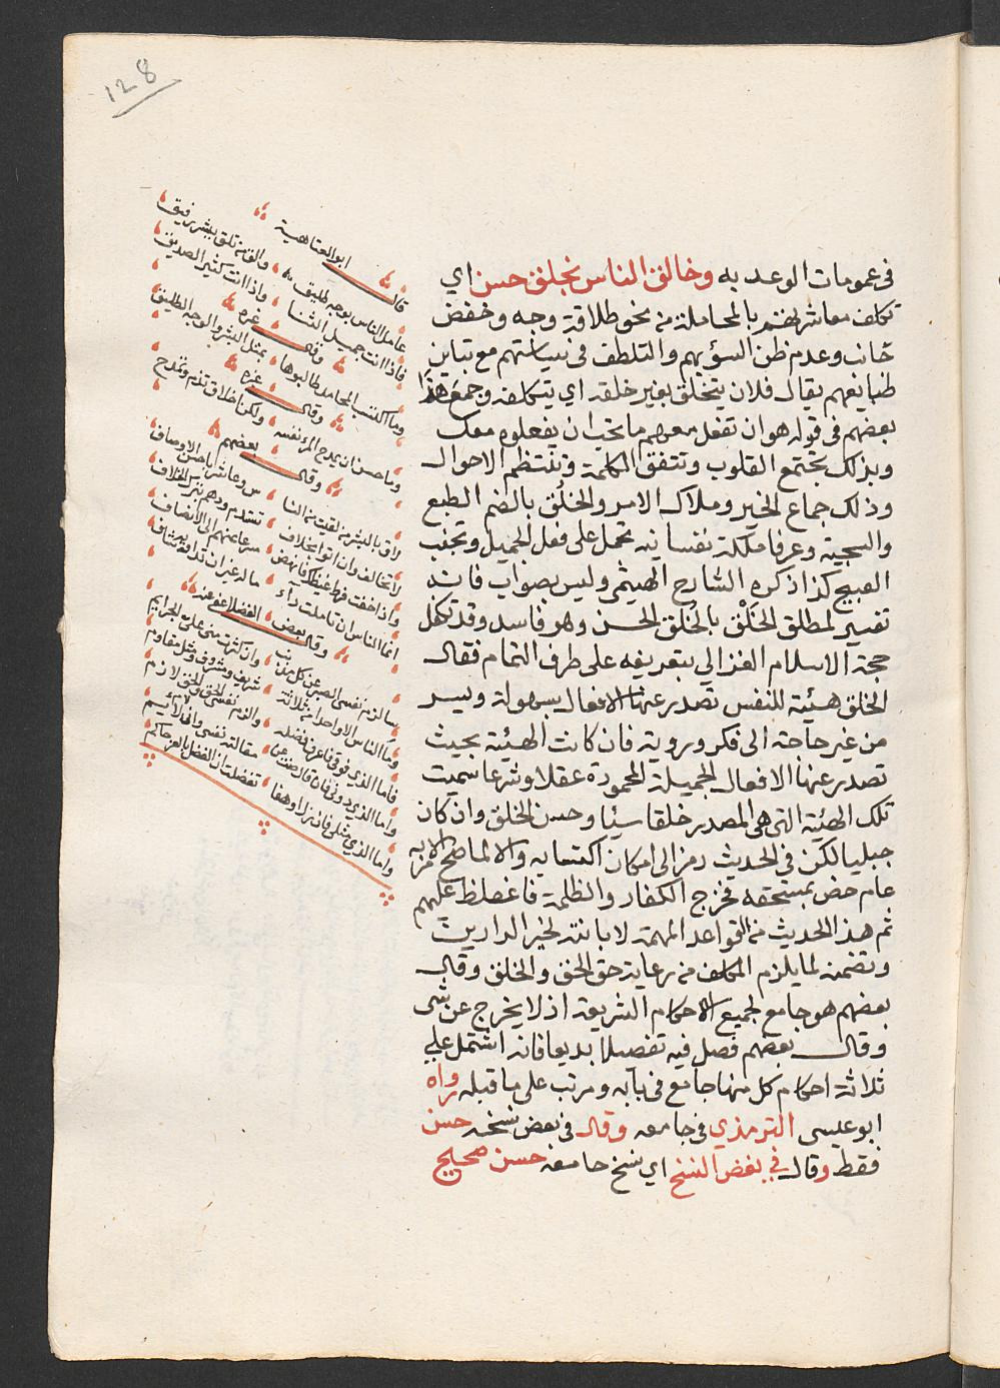 128
في عمومات الوعد به وخالق الناس بخلق حسن اي
تكلف معاشرتهم بالمجاملة من نحو طلاقة وجه وخفض
جانب وعدم ظن السؤ بهم والتلطف في سياستهم مع تباين
طبايعهم يقال فلان يتخلق بغير خلقه اي يتكلفه وجمع هذا
بعضهم في قوله هو ان تفعل معهم ما تحب ان يفعلوه معك
وبذلك تجتمع القلوب وتتفق الكلمة وتنتظم الاحوال
وذلك جماع الخير وملاك الامر والخلُق بالضم الطبع
والسجية وعرفا ملكة نفسانية تحمل على فعل الجميل وتجنب
القبيح كذا ذكره الشارح الهيثمي وليس بصواب فانه
تفسير لمطلق الخلق بالخلق الحسن وهو فاسد وقد تكفل
حجة الاسلام الغزالي بتعريفه على طرف التمام فقال
الخلق هيئة للنفس تصدر عنها الافعال بسهولة ويسر
من غير حاجة الى فكر وروية فان كانت الهيئة بحيث
تصدر عنها الافعال الجميلة المحمودة عقلا وشرعا سميت
تلك الهيئة التي هي المصدر خلقا سيئا وحسن الخلق وان كان
جبليا لكن في الحديث رمز الى امكان اكتسابه والا لما صح الامر به
عام خص بمستحقه فخرج الكفار والظلمة فاغلظ عليهم
ثم هذا الحديث من القواعد المهمة لابانته لخير الدارين
وتضمنه لما يلزم المكلف من رعاية حق الحق والخلق وقال
بعضهم هو جامع لجميع الاحكام الشريعة اذ لا يخرج عن شى
وقال بعضهم فصل فيه تفصيلا بديعا فانه اشتمل على
ثلاثة احكام كل منها جامع في بابه ومرتب على ما قبله رواه
ابو عيسى الترمذي في جامعه وقال في بعض نسخه حسن
فقط وقال في بعض النسخ اي نسخ جامعه حسن صحيح
قال ابو العتاهية
عامل الناس بوجه طليق والق من تلق ببشر رفيق
فاذا انت جميل الثنا واذا انت كثير الصديق
وقال غيره
وما اكتسب المحامد طالبوها بمثل البشر والوجه الطليق
وقال غيره
وما حسن ان يمدح المرء نفسه ولكن اخلاقا تذم وتمدح
وقال بعضهم
لاق بالبشر من لقيت من النا س وعاشر باحسن الاوصاف
لا تخالف وان اتوا بخلاف تستدم ودهم بترك الخلاف
واذا خفت فرط غيظك فانهض مسرعا عنهم الى الانصاف
انما الناس ان تاملت داء ما له غير ان تداويه شاف
وقال بعض الفضلا عفي عنه
سالزم نفسى الصبر عن كل مذنب وان كثرت منه على الجرايم
وما الناس الا واحدا من ثلاثة شريف ومشروف ومثل مقاوم
فاما الذي فوقي فاعرف فضله والزم نفسي الحق والحق لازم
واما الذي دوني فان قال صنت عن مقالته نفسي وان لام لايم
واما الذي مثلي فان زل او هفا تفضلت ان الفضل بالعز حاكم